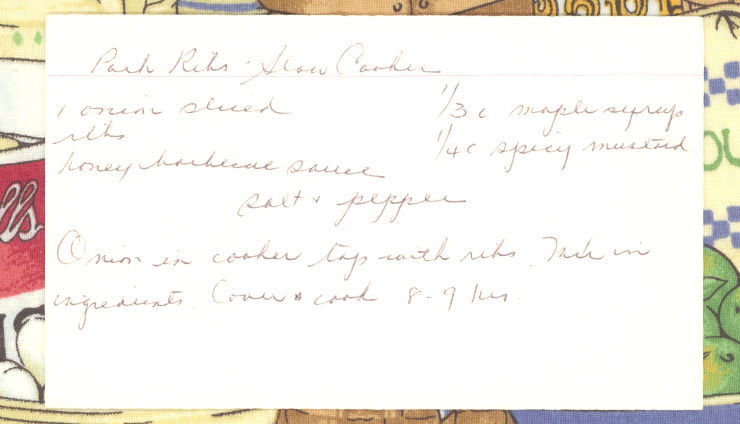 Pork Ribs - Slow Cooker
1 onion sliced
ribs
honey barbecue sauce
1/3 c maple syrup
1/4 c spicy mustard
salt & pepper
Onion in cooker top with ribs. Mix in
ingredients. Cover & cook 8-9 hrs.
lls